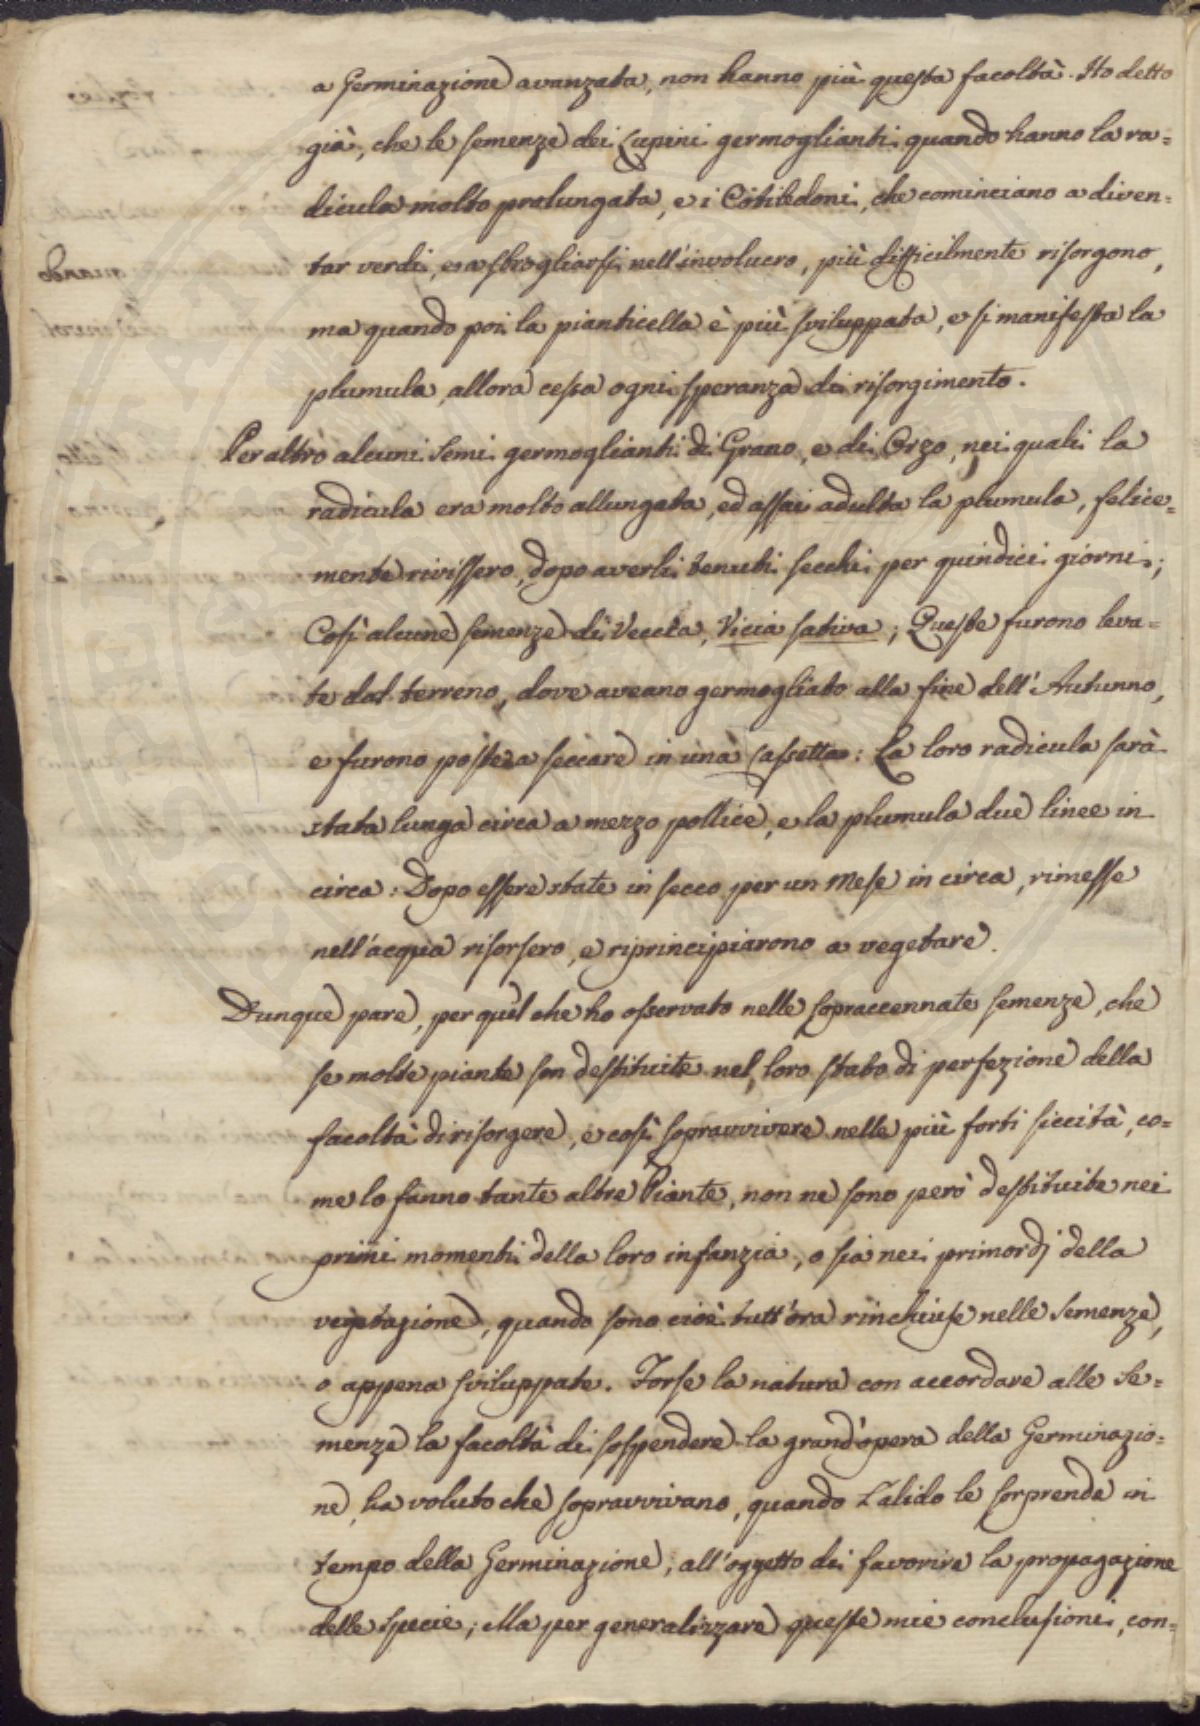 a Germinazione avanzata, non hanno più questa facoltà. Ho detto
già, che le semenze dei Lupini germoglianti quando hanno la ra=
dicula molto prolungata, e i Cotiledoni, che cominciano a diven=
tar verdi, e a sbrogliarsi nell'involucro, più difficilmente risorgono,
ma quando poi la pianticella è più sviluppata, e si manifesta la
plumula, allora cessa ogni speranza di risorgimento.
Per altro alcuni semi germoglianti di Grano, e di Orzo, nei quali la
radicula era molto allungata, ed assai adulta la plumula, felice=
mente rivissero, dopo averli tenuti secchi per quindici giorni;
Così alcune semenze di Veccia, Vicia sativa; Queste furono leva=
te dal terreno, dove aveano germogliato alla fine dell'Autunno,
e furono poste a seccare in una Cassetta: La loro radicula sarà
stata lunga circa a mezzo pollice, e la plumula due linee in
circa: Dopo essere state in secco per un Mese in circa, rimesse
nell'acqua risorsero, e riprincipiarono a vegetare.
Dunque pare, per quel che ho osservato nelle sopraccennate semenze, che
se molte piante son destituite nel loro stato di perfezione della
facoltà di risorgere, e così sopravvivere nelle più forti siccità, co=
me lo fanno tante altre Piante, non ne sono però destituite nei
primi momenti della loro infanzia, o sia nei primordj della
vegetazione, quando sono cioè tutt'ora rinchiuse nelle semenze,
o appena sviluppate. Forse la natura con accordare alle se=
menze la facoltà di sospendere la grand'opera della Germinazio=
ne, ha voluto che sopravvivano, quando l'alido le sorprende in
tempo della Germinazione, all'oggetto di favorire la propagazione
delle specie; Ma per generalizzare queste mie conclusioni, con=